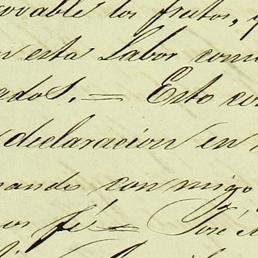 los frutos, y
esta Labor com
ados. = Esto co
declaracion en
ando conmigo
fé = José